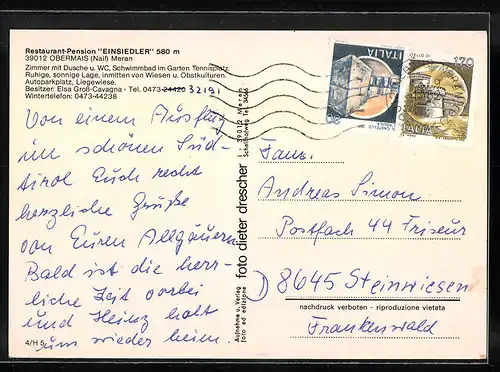 Restaurant-Pension "EINSIEDLER" 580 m
39012 OBERMAIS (Naif) Meran
Zimmer mit Dusche u. WC, Schwimmbad im Garten Tennisplatz.
Ruhige, sonnige Lage, inmitten von Wiesen u. Obstkulturen.
Autoparkplatz, Liegewiese.
Besitzer: Elsa Groß-Cavagna - Tel. 0473-24420 32191
Wintertelefon: 0473-44238
Von einem Ausflug
im schönen Süd-
tirol Euch recht
herzliche Grüße
von Euren Allgäuern
Bald ist die herr-
liche Zeit vorbei
und Heinz holt
uns wieder heim.
4/H 5
Aufnahme u. Verlag
foto ed edizione
foto dieter drescher
I - 39012 Meran
ITALIA
170
ITALIA
Fam.
Andreas Simon
Postfach 44 Friseur
8645 Steinwiesen
nachdruck verboten - riproduzione vietata
Frankenwald